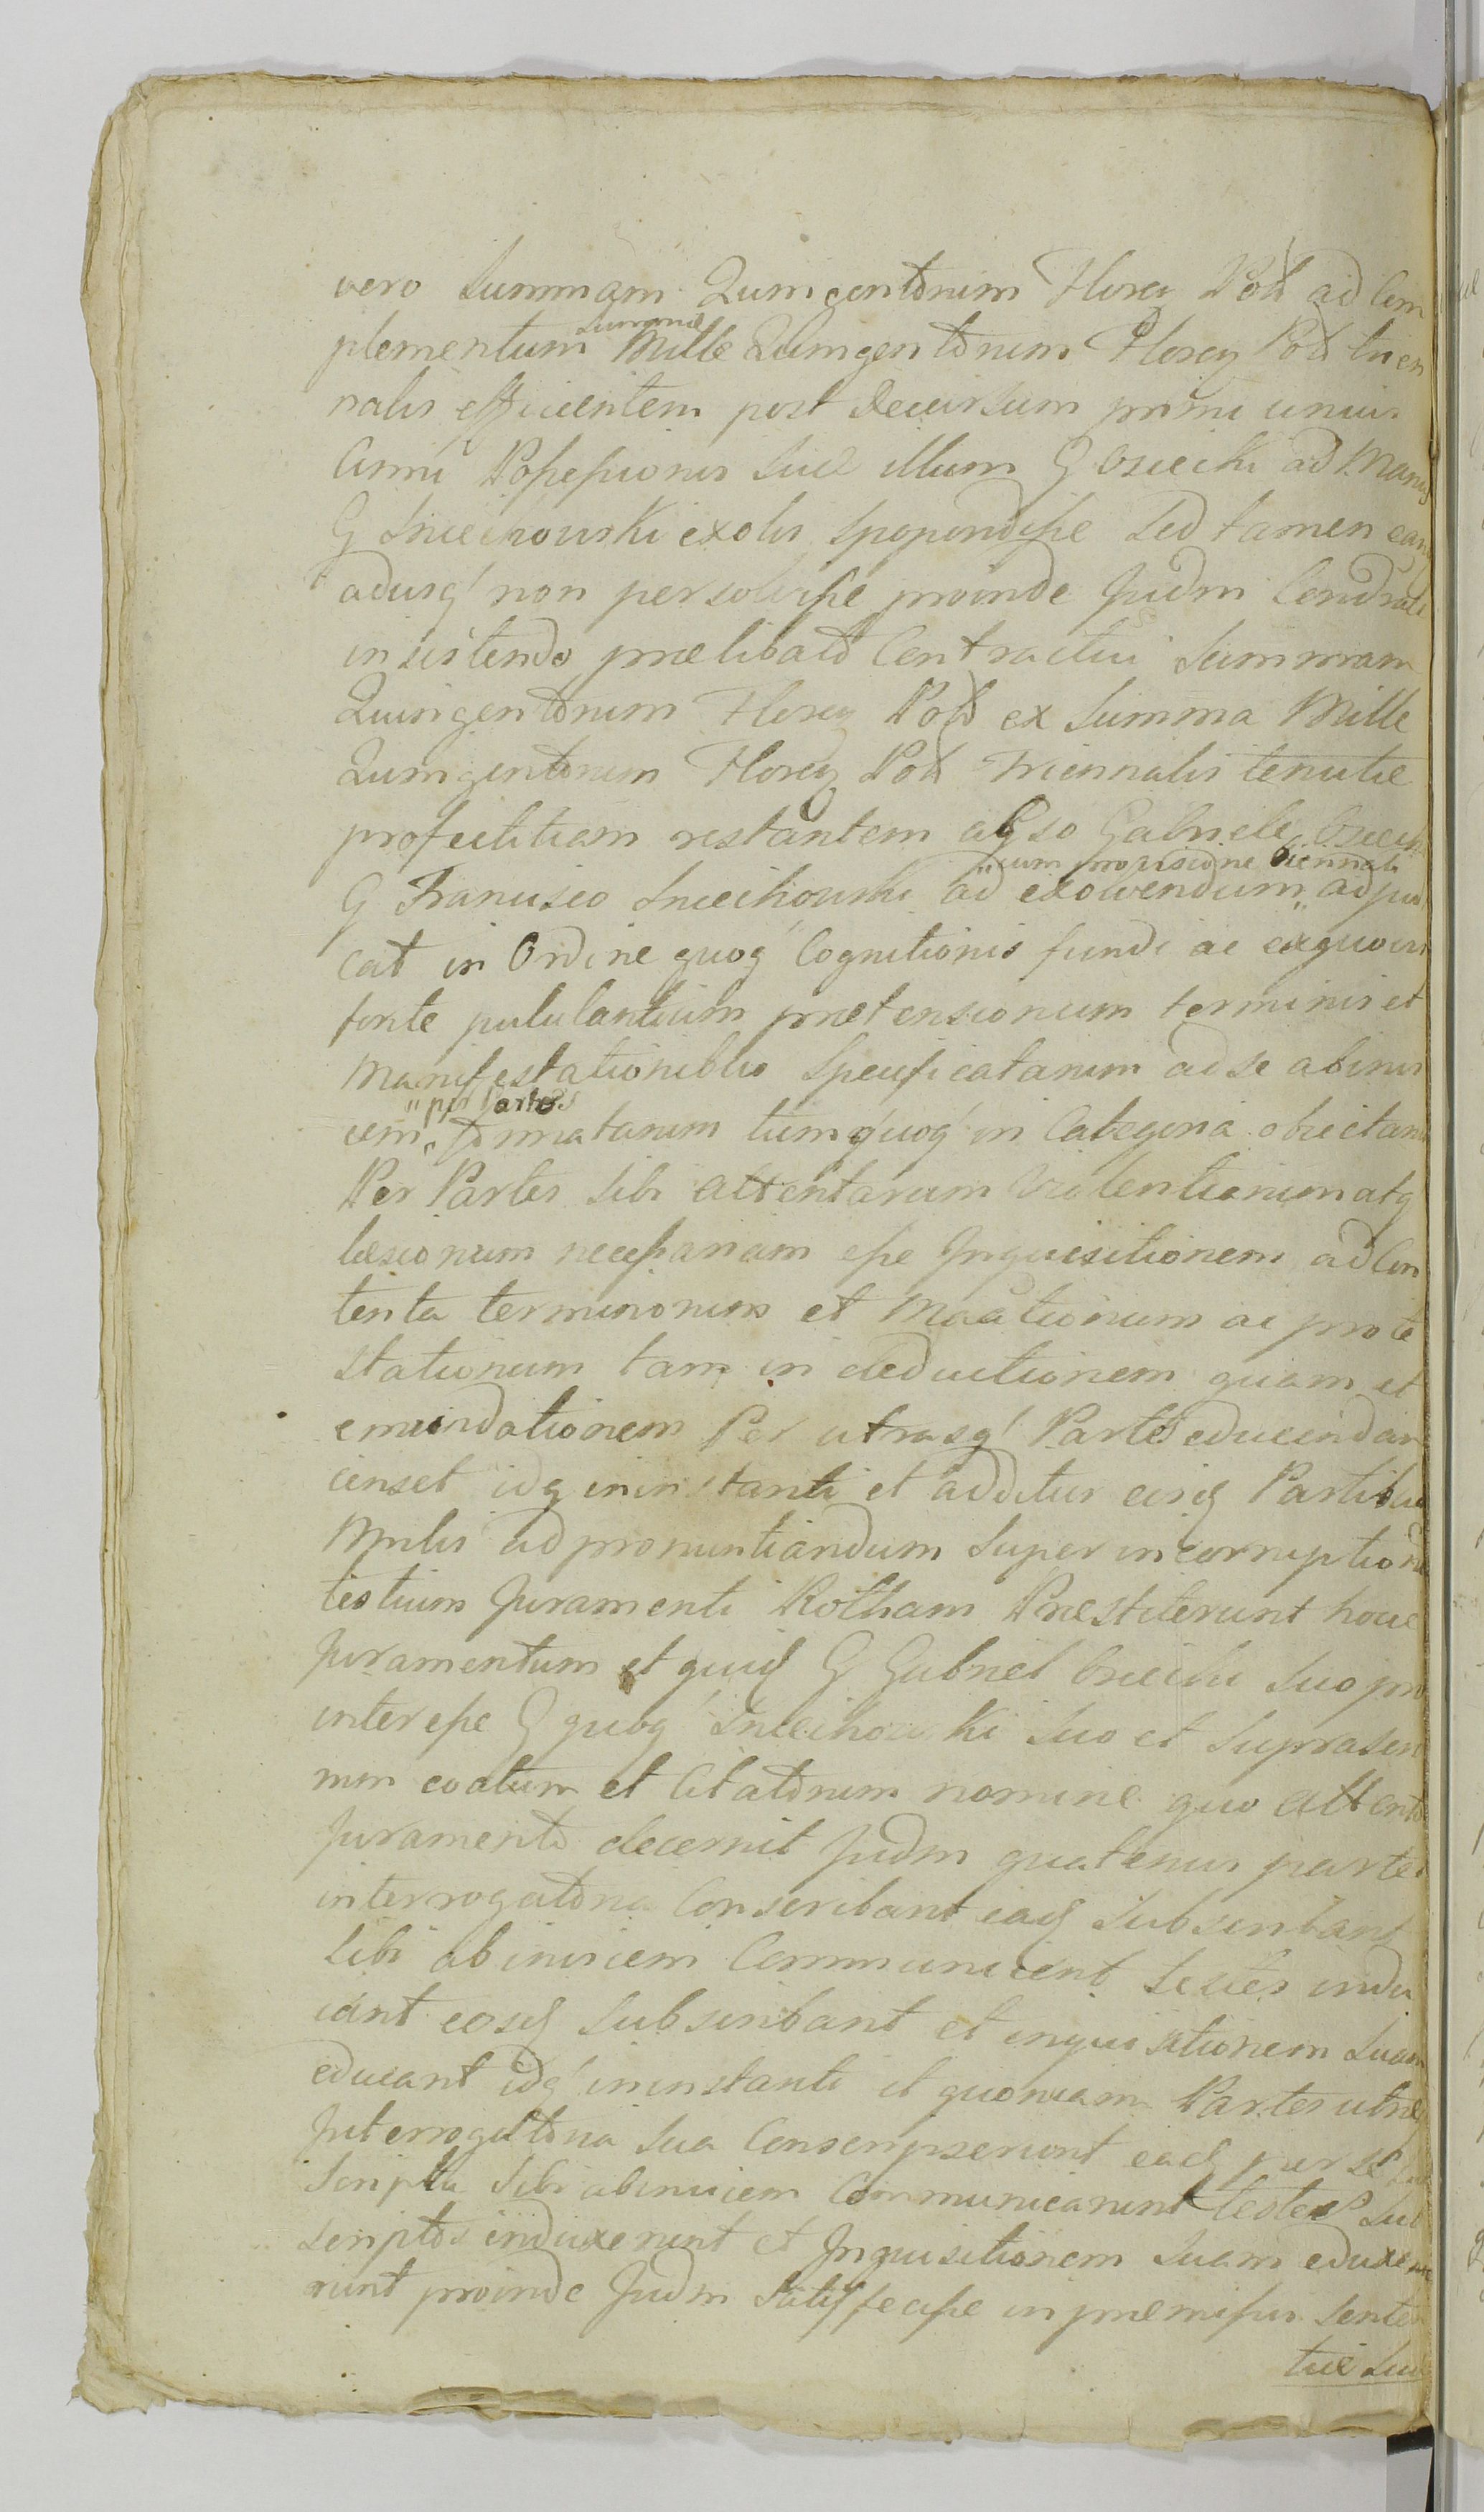 vero Summam Quingentorum Floren Pol ad Com
plementum Summæ Mille Quingentorum Floren Pol trien
nalis efficientem post Decursum primi unius
Anni Possessionis suæ illum G Osiecki ad Manus
G Sniechowski exolvi spopondisse sed tamen eam
adusq non persolvisse proinde Judm Condnale
insistendo prælibato Contractui Summam
Quingentorum Floren Pol ex Summa Mille
Quingentorum Floren Pol Triennalis tenutæ
profectitiam restantem a Gso Gabriele Osiecki
G Francisco Sniechowski ad exolvendum „cum provisione biennali„ adjudi
cat in Ordine quoq Cognitionis fundi ac exquovis
fonte pululantium prætensionum terminis et
Manifestationibus Specificatarum ad se abinvi
cem „per Partes„ formatarum tum quoq in Categoria obiectarum
Per Partes sibi attentarum Violentiarum atq
læsionum necessariam esse Inquisitionem ad Con
tenta terminorum et Maationum ac prote
stationum tam in deductionem quam et
emundationem Per utrasq Partes educendam
censet idq ininstanti et additur eisd Partibus
Mnlis ad pronuntiandum super incorruptione
testium Juramenti Rotham Præstiterunt hocce
Juramentum et quid G Gabriel Osiecki suo pro
interesse G quoq Sniechowski suo et suprascri
nm coatum et Citatorum nomine quo attento
Juramento decernit Judm quatenus partes
interrogatoria Conscribant ead Subscribant
Sibi abinvicem Communicent testes indu
cant eosd Subscribant et inquisitionem suam
educant idq ininstanti et quoniam Partes utræq
Interrogatoria sua Conscripserunt ead per se sub
scripta sibi abinvicem Communicarunt testes Sub
scriptos induxerunt et Inquisitionem suam eduxe
runt proinde Judm Satisfecisse in præmissis Senten
tiæ suæ